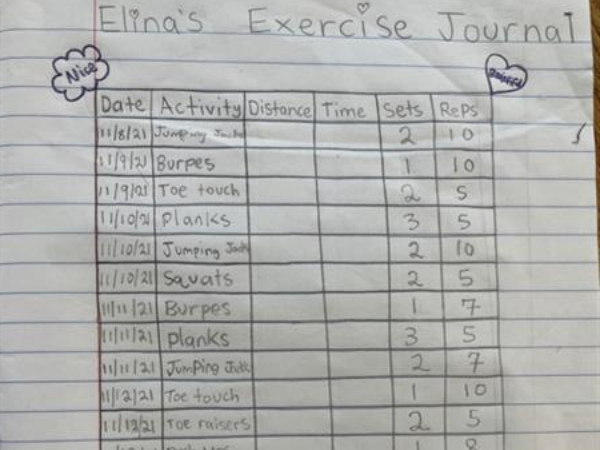 Elina's Exercise Journal
Nice
Date Activity Distance Time Sets Reps
11/8/21 Jumping Jacks 2 10
11/9/21 Burpes 1 10
11/9/21 Toe touch 2 5
11/10/21 Planks 3 5
11/10/21 Jumping Jacks 2 10
11/10/21 Squats 2 5
11/11/21 Burpes 1 7
11/11/21 Planks 3 5
11/11/21 Jumping Jacks 2 7
11/12/21 Toe touch 1 10
11/12/21 Toe raisers 2 5
1 8